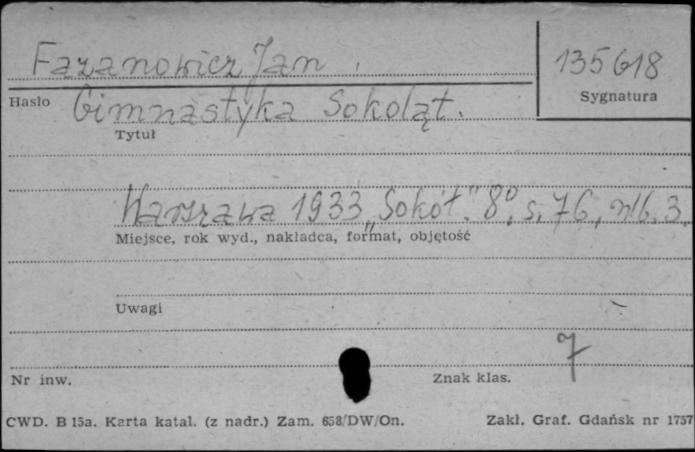 Fazanowicz Jan
135618
Hasło
Sygnatura
Gimnastyka Sokoląt.
Tytuł
Warszawa 1933 „Sokół." 8°, s. 76, nlb. 3.
Miejsce, rok wyd., nakładca, format, objętość
Uwagi
7
Nr inw.
Znak klas.
CWD. B 15a. Karta katal. (z nadr.) Zam. 658/DW/On.
Zakł. Graf. Gdańsk nr 1757